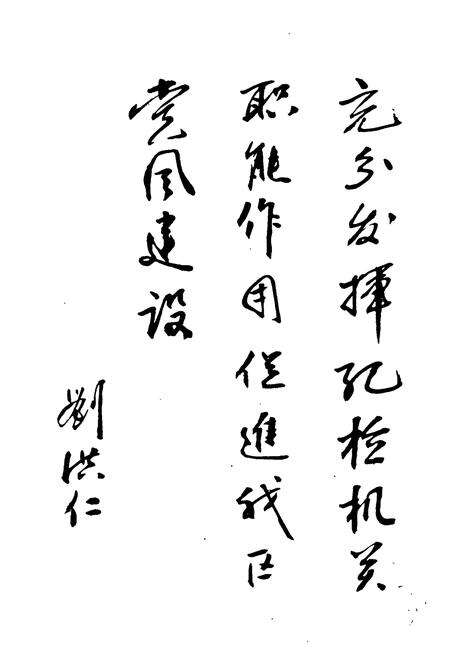 充分发揮纪检机关
职能作用促進我区
党风建设
劉洪仁